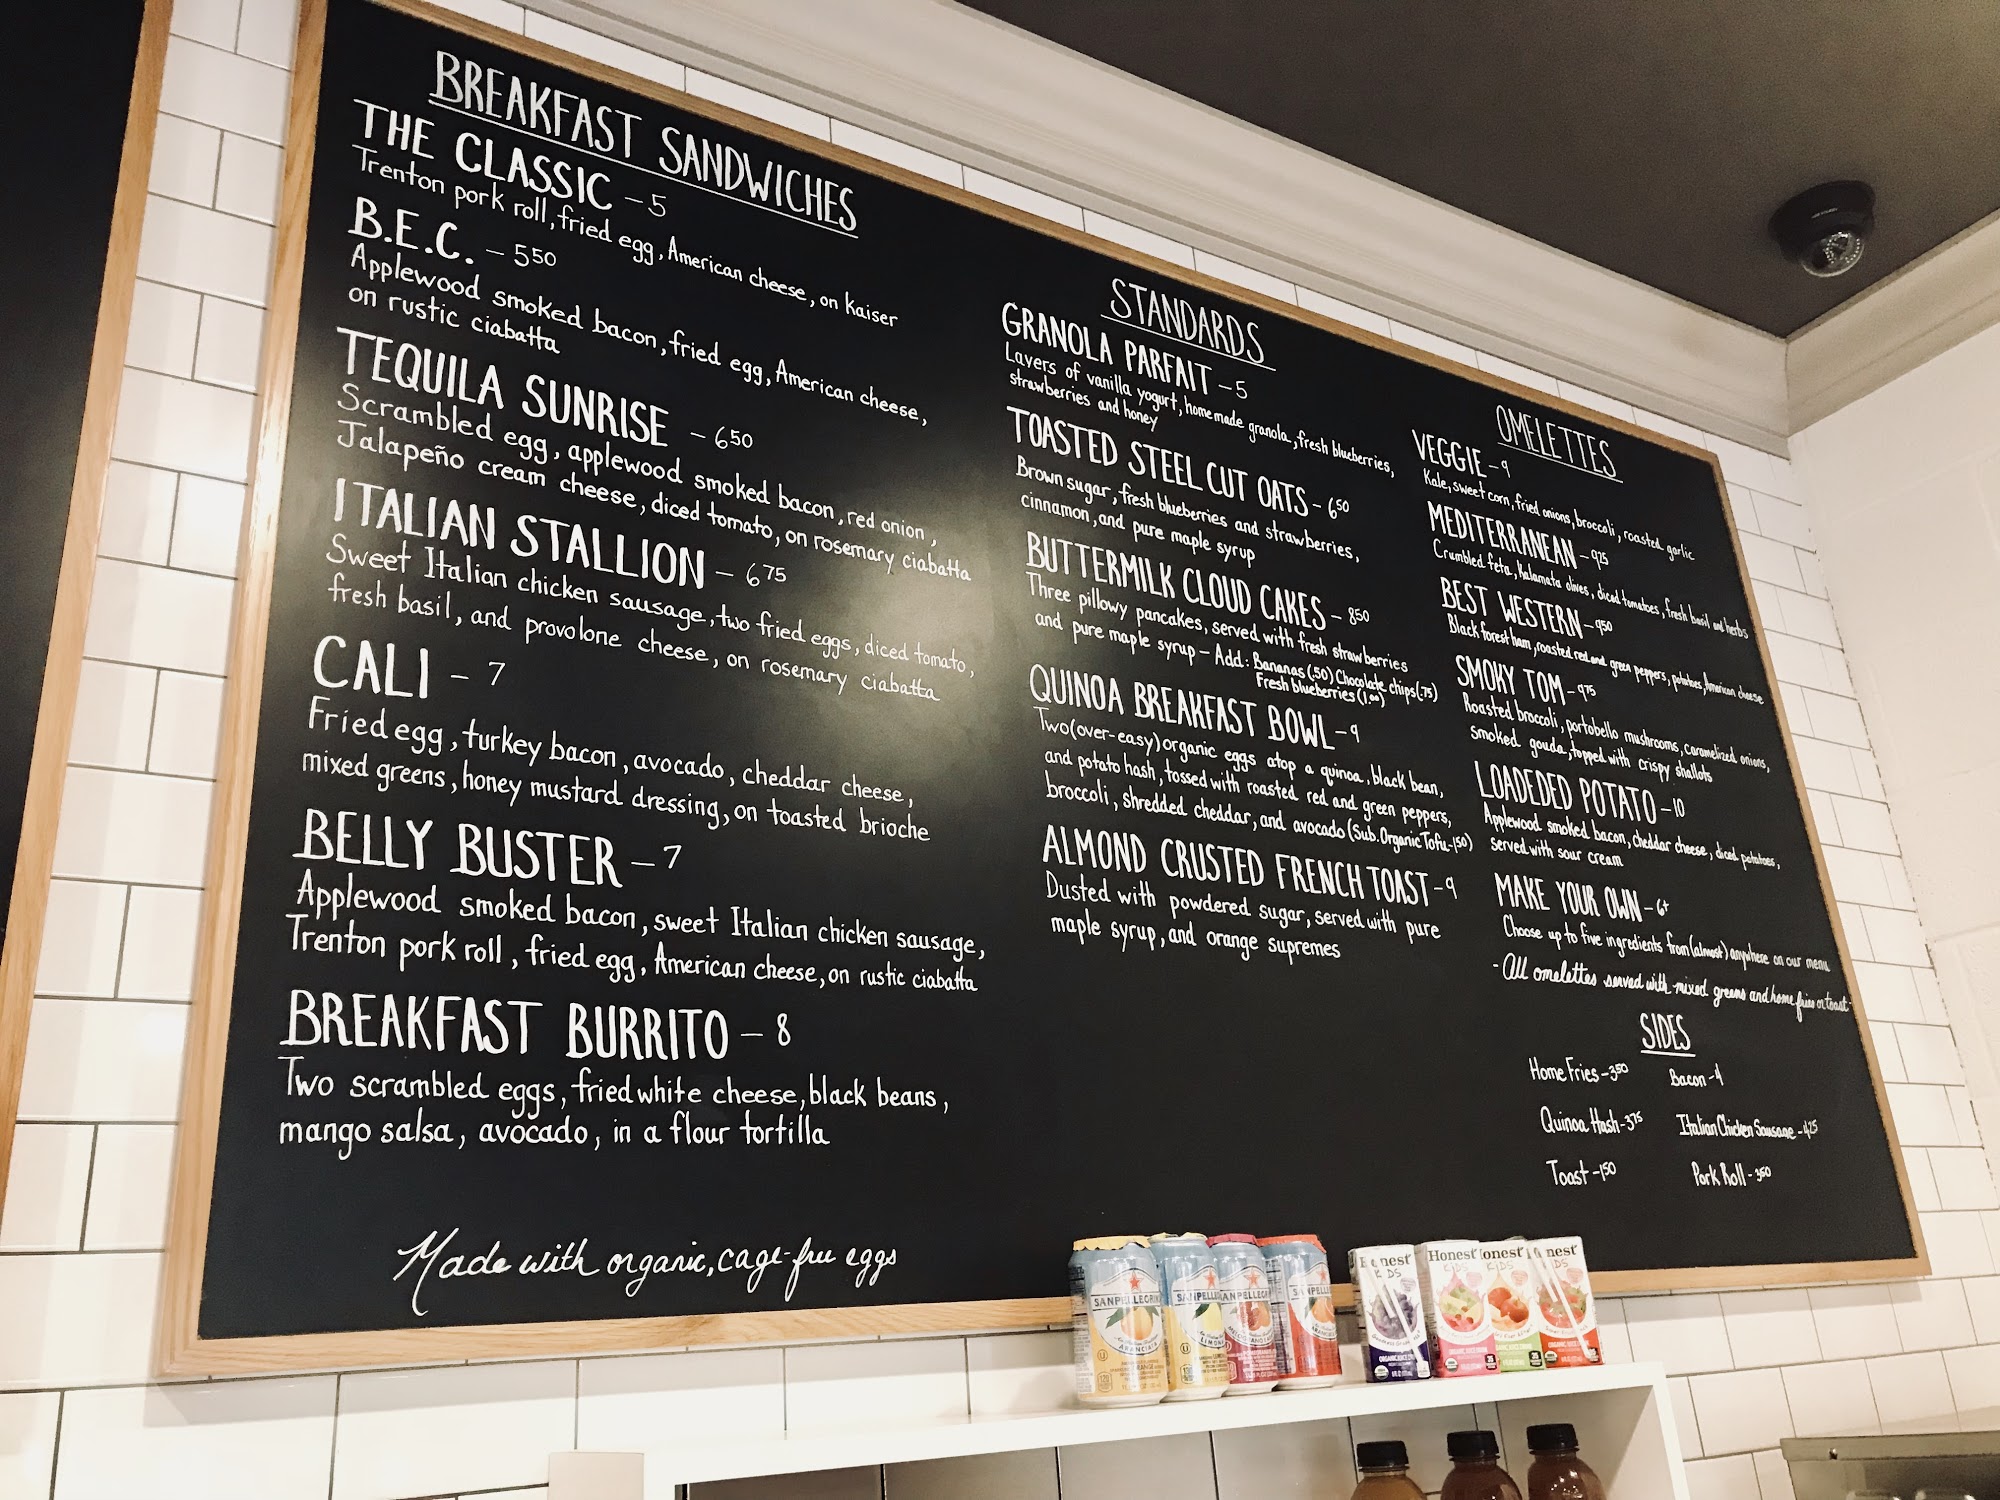 BREAKFAST SANDWICHES
THE CLASSIC - 5
Trenton pork roll, fried egg, American cheese, on kaiser
B.E.C. - 5 50
Applewood smoked bacon, fried egg, American cheese,
on rustic ciabatta
TEQUILA SUNRISE - 6 50
Scrambled egg, applewood smoked bacon, red onion,
Jalapeño cream cheese, diced tomato, on rosemary ciabatta
ITALIAN STALLION - 6 75
Sweet Italian chicken sausage, two fried eggs, diced tomato,
fresh basil, and provolone cheese, on rosemary ciabatta
CALI - 7
Fried egg, turkey bacon, avocado, cheddar cheese,
mixed greens, honey mustard dressing, on toasted brioche
BELLY BUSTER - 7
Applewood smoked bacon, sweet Italian chicken sausage,
Trenton pork roll, fried egg, American cheese, on rustic ciabatta
BREAKFAST BURRITO - 8
Two scrambled eggs, fried white cheese, black beans,
mango salsa, avocado, in a flour tortilla
Made with organic, cage-free eggs
STANDARDS
GRANOLA PARFAIT - 5
Layers of vanilla yogurt, homemade granola, fresh blueberries,
strawberries and honey
TOASTED STEEL CUT OATS - 6 50
Brown sugar, fresh blueberries and strawberries,
cinnamon, and pure maple syrup
BUTTERMILK CLOUD CAKES - 8 50
Three pillowy pancakes, served with fresh strawberries
and pure maple syrup - Add: Bananas (.50) Chocolate chips (.75)
Fresh blueberries (1.00)
QUINOA BREAKFAST BOWL - 9
Two (over-easy) organic eggs atop a quinoa, black bean,
and potato hash, tossed with roasted red and green peppers,
broccoli, shredded cheddar, and avocado (Sub. Organic Tofu-1 50)
ALMOND CRUSTED FRENCH TOAST - 9
Dusted with powdered sugar, served with pure
maple syrup, and orange supremes
OMELETTES
VEGGIE - 9
Kale, sweet corn, fried onions, broccoli, roasted garlic
MEDITERRANEAN - 9 25
Crumbled feta, Kalamata olives, diced tomatoes, fresh basil and herbs
BEST WESTERN - 9 50
Black forest ham, roasted red and green peppers, potatoes, American cheese
SMOKY TOM - 9 75
Roasted broccoli, portobello mushrooms, caramelized onions,
smoked gouda, topped with crispy shallots
LOADEDED POTATO - 10
Applewood smoked bacon, cheddar cheese, diced potatoes,
served with sour cream
MAKE YOUR OWN - 6+
Choose up to five ingredients from (almost) anywhere on our menu
- All omelettes served with mixed greens and home fries or toast -
SIDES
Home Fries - 3 50
Bacon - 4
Quinoa Hash - 3 75
Italian Chicken Sausage - 4 25
Toast - 1 50
Pork Roll - 3 50
SANPELLEGRINO
ARANCIATA
SANPELLE
LIMON
SANPELLEGRI
Honest
KIDS
Honest
KIDS
onest
KIDS
nest
KIDS